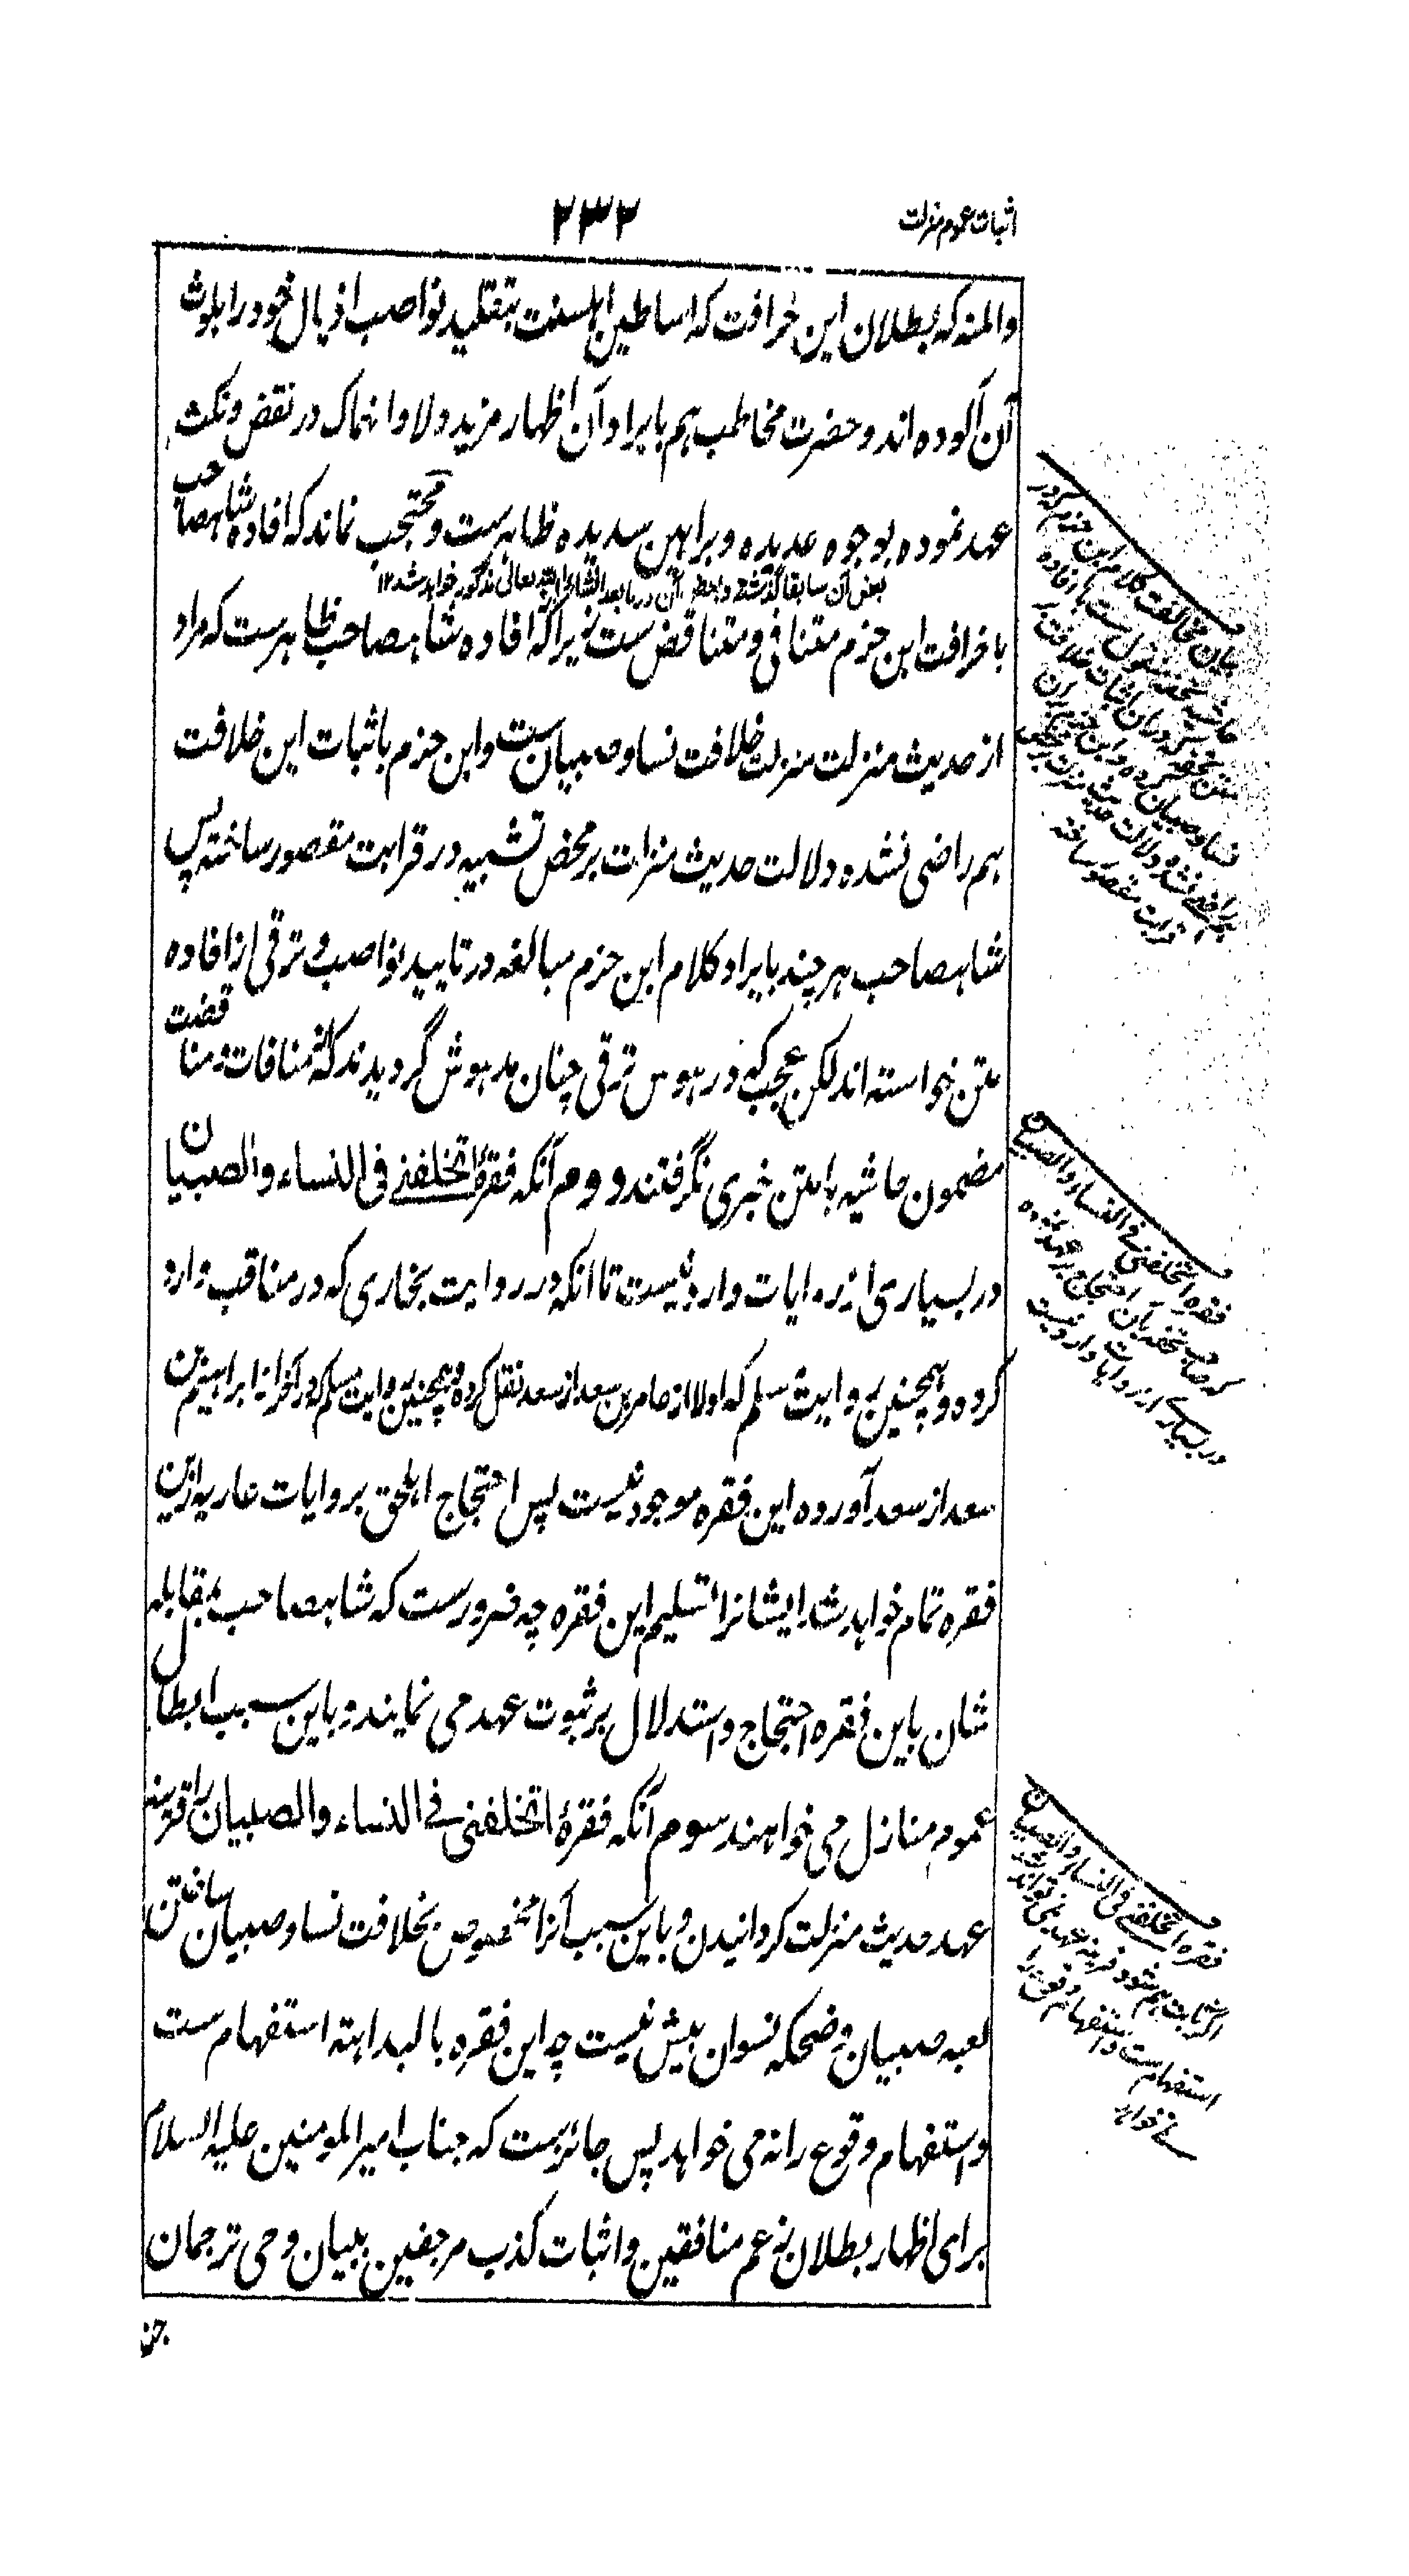 اثبات عموم منزلت
۲۳۲
والمنه که بطلان این خرافت که اساطین اهلسنت بتقلید نواصب اذیال خود را بلوث
آن آلوده اند و حضرت مخاطب هم بایراد آن اظهار مزید ولا و انهماک در نقض و نکث
عهد نموده بوجوه عدیده و براهین سدیده ظاهرست و محتجب نماند که افاده شاهصاحب
بعض آن سابقا گذشته و بعض آن در ما بعد انشاء الله تعالی مذکور خواهد شد ۱۲
با خرافت ابن حزم متنافی و متناقض ست زیرا که افاده شاهصاحب ظاهرست که مراد
از حدیث منزلت منزلت خلافت نسا و صبیان ست و ابن حزم باثبات این خلافت
هم راضی نشده دلالت حدیث منزلت بر محض تشبیه در قرابت مقصور ساخته پس
شاهصاحب هر چند بایراد کلام ابن حزم مبالغه در تایید نواصب و ترقی از افاده
متن خواسته اند لکن عجب که در هوس ترقی چنان مدهوش گردیدند که از منافات و مناقضت
مضمون حاشیه با متن خبری نگرفتند دوم آنکه فقرهٔ اتخلفنی فی النساء والصبیان
در بسیاری از روایات وارد نیست تا آنکه در روایت بخاری که در مناقب وارد
کرده و همچنین روایت مسلم که اولا از عامر بن سعد از سعد نقل کرده و همچنین روایت مسلم که در آخر از ابراهیم بن
سعد از سعد آورده این فقره موجود نیست پس احتجاج اهلحق بروایات عاریه ازین
فقره تمام خواهد شد ایشانرا تسلیم این فقره چه ضرورست که شاهصاحب بمقابله
شان باین فقره احتجاج و استدلال بر ثبوت عهد می نمایند و باین سبب ابطال
عموم منازل می خواهند سوم آنکه فقرهٔ اتخلفنی فی النساء والصبیان را قرینه
عهد حدیث منزلت گردانیدن و باین سبب آنرا مخصوص بخلافت نسا و صبیان ساختن
لعبه صبیان و ضحکه نسوان بیش نیست چه این فقره بالبداهته استفهام ست
و استفهام وقوع را نه می خواهد پس جائزست که جناب امیر المومنین علیه السلام
برای اظهار بطلان زعم منافقین و اثبات کذب مرجفین ببیان وحی ترجمان
بیان مخالفت کلام ابن حزم که در
حاشیه تحفه منقول ست با افاده
نسا و صبیان کرده و ابن حزم بآن
راضی نشده و دلالت حدیث منزلت بر محض
قرابت مقصور ساخته
فقره اتخلفنی فی النساء والصبیان
که صاحب تحفه بآن احتجاج بر عهد نموده
در بسیاری از روایات وارد نیست
فقره اتخلفنی فی النساء والصبیان
اگر ثابت هم شود قرینه عهد نمی تواند شد
استفهام ست و استفهام وقوع را
نمی خواهد